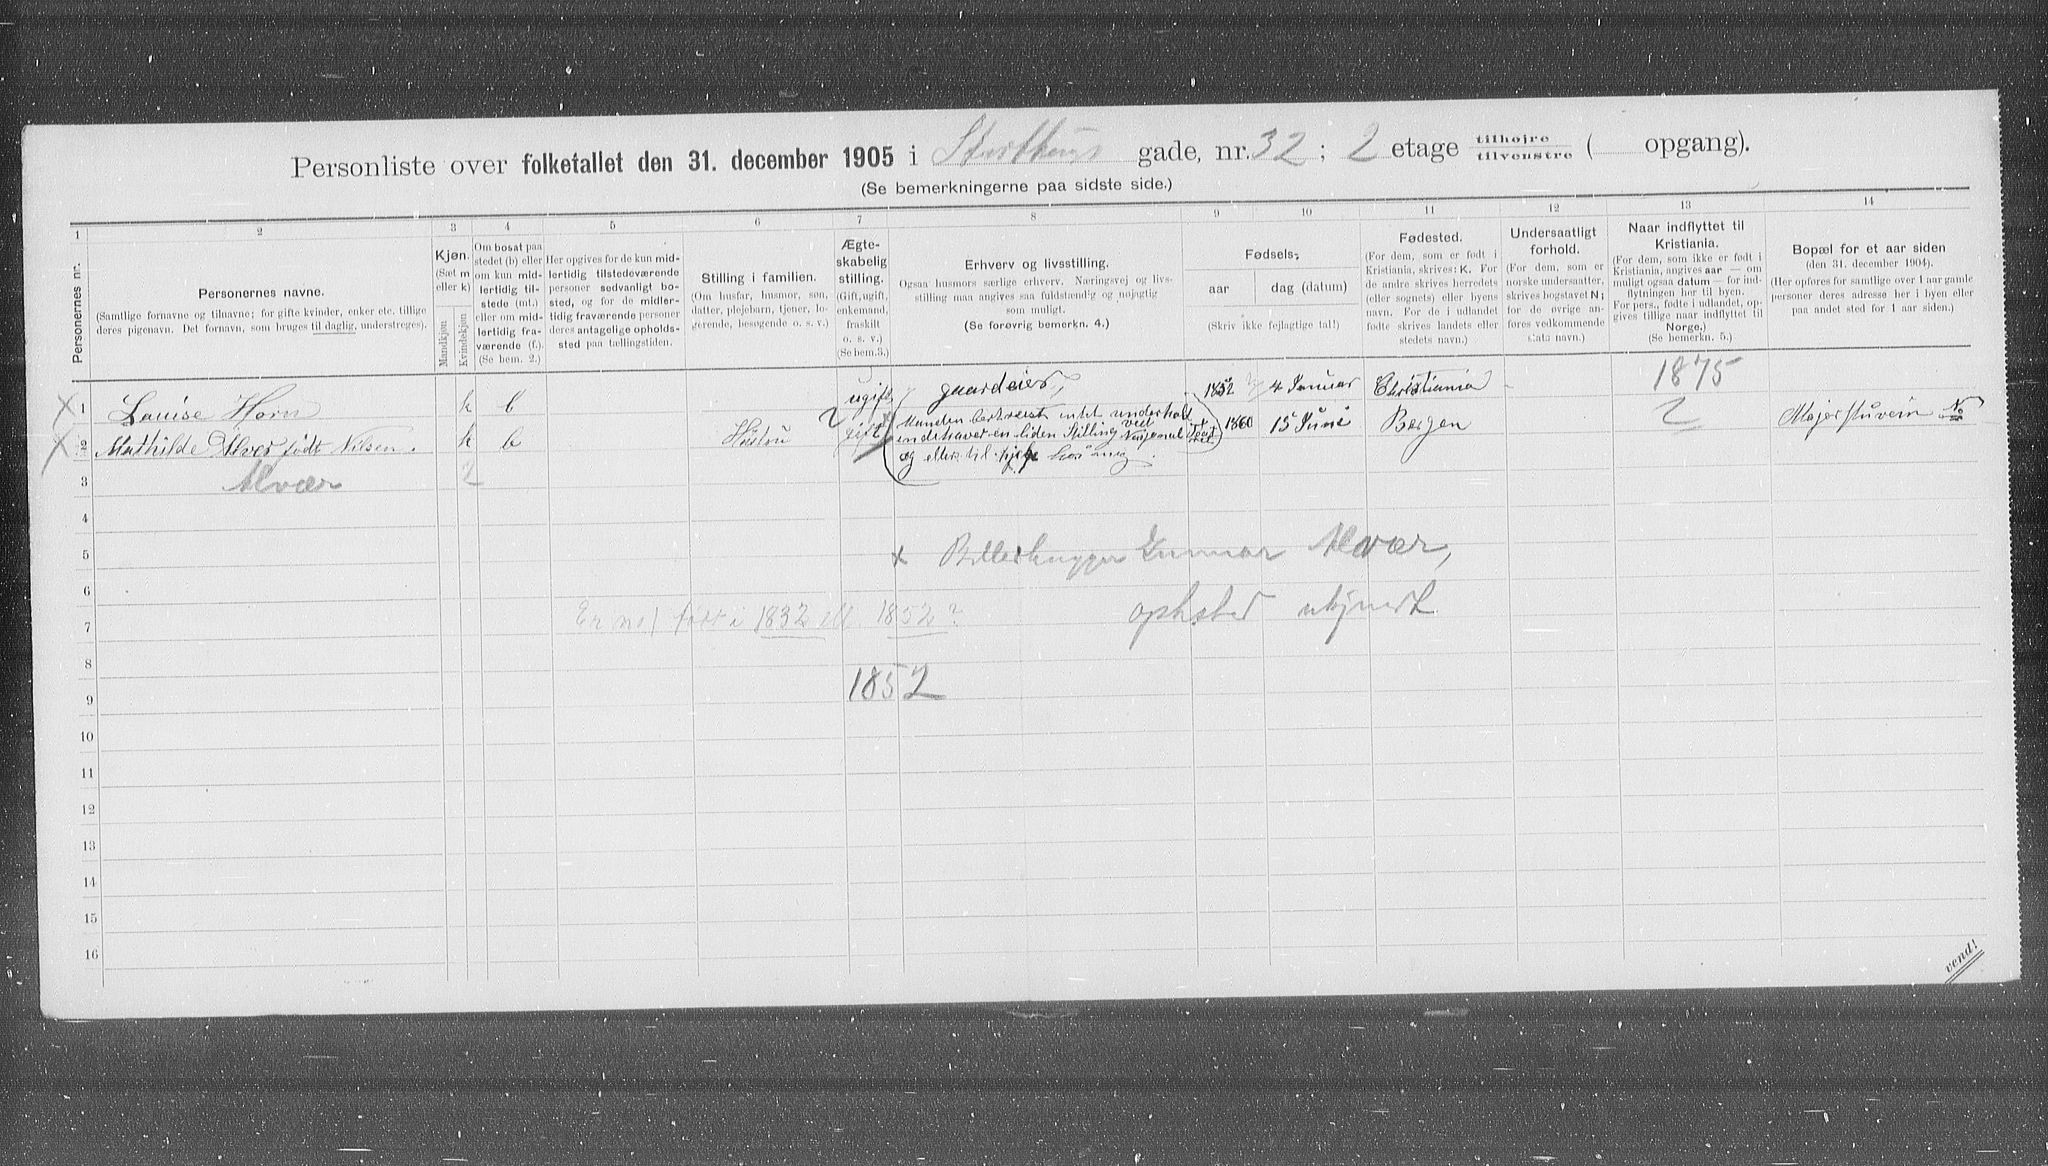 Personliste over folketallet den 31. december 1905 i Storthings gade, nr. 32; 2 etage tilhøjre / tilvenstre ( opgang).
(Se bemerkningerne paa sidste side.)
1 2 3 4 5 6 7 8 9 10 11 12 13 14
Personernes nr.
Personernes navne.
(Samtlige fornavne og tilnavne; for gifte kvinder, enker etc. tillige
deres pigenavn. Det fornavn, som bruges til daglig, understreges).
Kjøn.
(Sæt m
eller k)
Mandkjøn
Kvindekjøn
Om bosat paa
stedet (b) eller
om kun mid-
lertidig til-
stede (mt.)
eller om mid-
lertidig fra-
værende (f.).
(Se bem. 2.)
Her opgives for de kun mid-
lertidig tilstedeværende
personer sedvanligt bo-
sted, og for de midler-
tidig fraværende personer
deres antagelige opholds-
sted paa tællingstiden.
Stilling i familien.
(Om husfar, husmor, søn,
datter, plejebarn, tjener, lo-
gerende, besøgende o. s. v.)
Ægte-
skabelig
stilling.
(Gift, ugift,
enkemand,
fraskilt
o. s. v.)
(Se bem. 3.)
Erhverv og livsstilling.
Ogsaa husmors særlige erhverv. Næringsvej og livs-
stilling maa angives saa fuldstændig og nøjagtig
som muligt.
(Se forøvrig bemerkn. 4.)
Fødsels-
aar
dag (datum)
(Skriv ikke fejlagtige tal!)
Fødested.
(For dem, som er født i
Kristiania, skrives: K. For
de andre skrives herredets
(eller sognets) eller byens
navn. For de i udlandet
fødte skrives landets eller
stedets navn.)
Undersaatligt
forhold.
(For dem, som er
norske undersaatter,
skrives bogstavet N;
for de øvrige an-
føres vedkommende
stats navn.)
Naar indflyttet til
Kristiania.
(For dem, som ikke er født i
Kristiania, angives aar — om
muligt ogsaa datum — for ind-
flytningen her til byen.
For pers., fødte i udlandet, op-
gives tillige naar indflyttet til
Norge.)
(Se bemerkn. 5.)
Bopæl for et aar siden
(den 31. december 1904).
(Her opføres for samtlige over 1 aar gamle
personer deres adresse her i byen eller
paa andet sted for 1 aar siden.)
X 1 Louise Horn k b ugift gaardeier, 1852 4 Januar Christiania 1875
X 2 Mathilde Alver født Nilsen. k b gift Manden bortreist intet underhold 1860 15 Juni Bergen Majorstuvein No
indehaver en liden Stilling ved
og ellers til hjelp hos mig.
3 Alvær 2
4
5 x Billedhugger Gunnar Alvær,
6 opholdsted ubekjendt
7 Er no 1 født i 1832 ell 1852?
8
9 1852
10
11
12
13
14
15
16
vend!